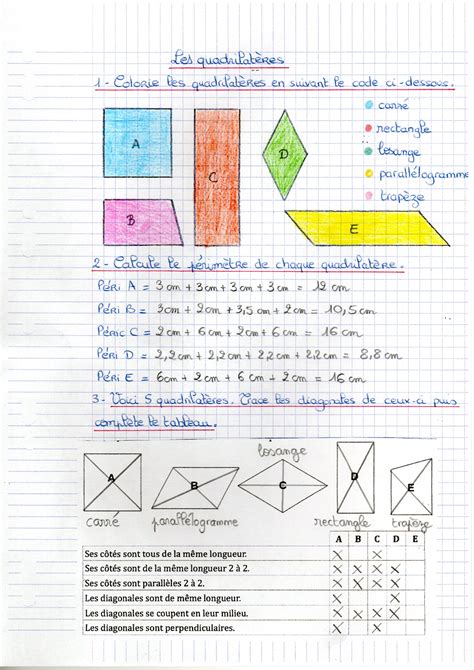 Les quadrilatères
1 - Colorie les quadrilatères en suivant le code ci-dessous.
carré
rectangle
losange
parallélogramme
trapèze
A
B
C
D
E
2 - Calcule le périmètre de chaque quadrilatère.
Péri A = 3cm + 3cm + 3cm + 3cm = 12 cm
Péri B = 3cm + 2cm + 3,5 cm + 2cm = 10,5 cm
Péric C = 2cm + 6cm + 2cm + 6cm = 16 cm
Péri D = 2,2cm + 2,2cm + 2,2cm + 2,2cm = 8,8 cm
Péri E = 6cm + 2cm + 6cm + 2cm = 16 cm
3 - Voici 5 quadrilatères. Trace les diagonales de ceux-ci puis
complète le tableau.
losange
A
B
C
D
E
carré parallélogramme rectangle trapèze
A B C D E
Ses côtés sont tous de la même longueur. X X
Ses côtés sont de la même longueur 2 à 2. X X X X
Ses côtés sont parallèles 2 à 2. X X X X
Les diagonales sont de même longueur. X X
Les diagonales se coupent en leur milieu. X X X X
Les diagonales sont perpendiculaires. X X